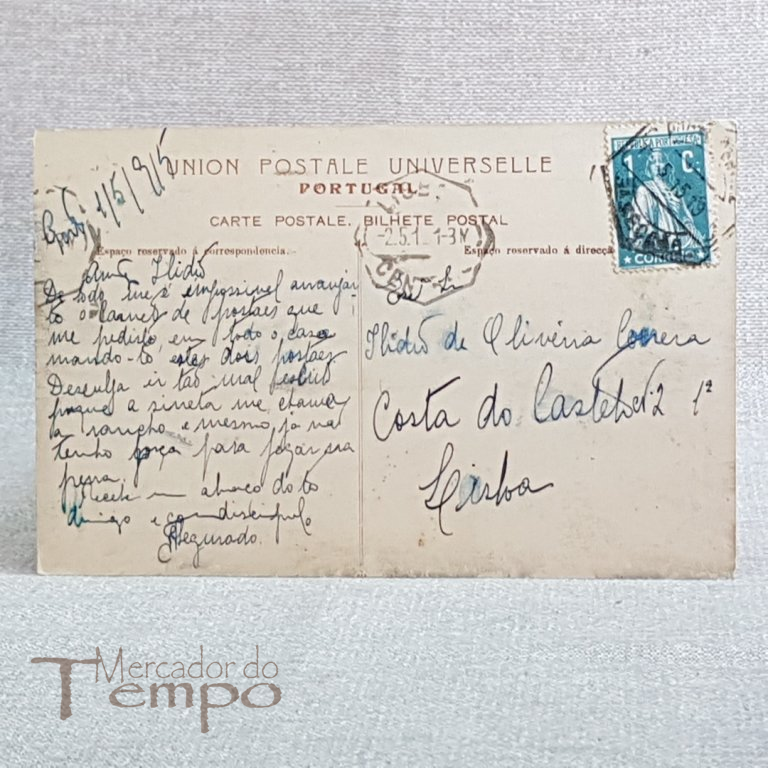 UNION POSTALE UNIVERSELLE
PORTUGAL
CARTE POSTALE. BILHETE POSTAL
Espaço reservado á correspondencia.
Espaço reservado á direcção
1/5/915
Ilidio
De todo me é impossivel arranjar
to o carnet de postaes que
me pediste, em todo o caso
mando-to, estes dois postaes
Desculpa ir tão mal
porque a sineta me chama
rancho, e mesmo já não
tenho força para
um abraço do to
amigo e condiscipulo
Segurado.
Ilidio de Oliveira Correia
Costa do Castelo 2 1º
Lisboa
2.5.1 1-3M
CENT
1 C.
CORREIO
Mercador do
Tempo